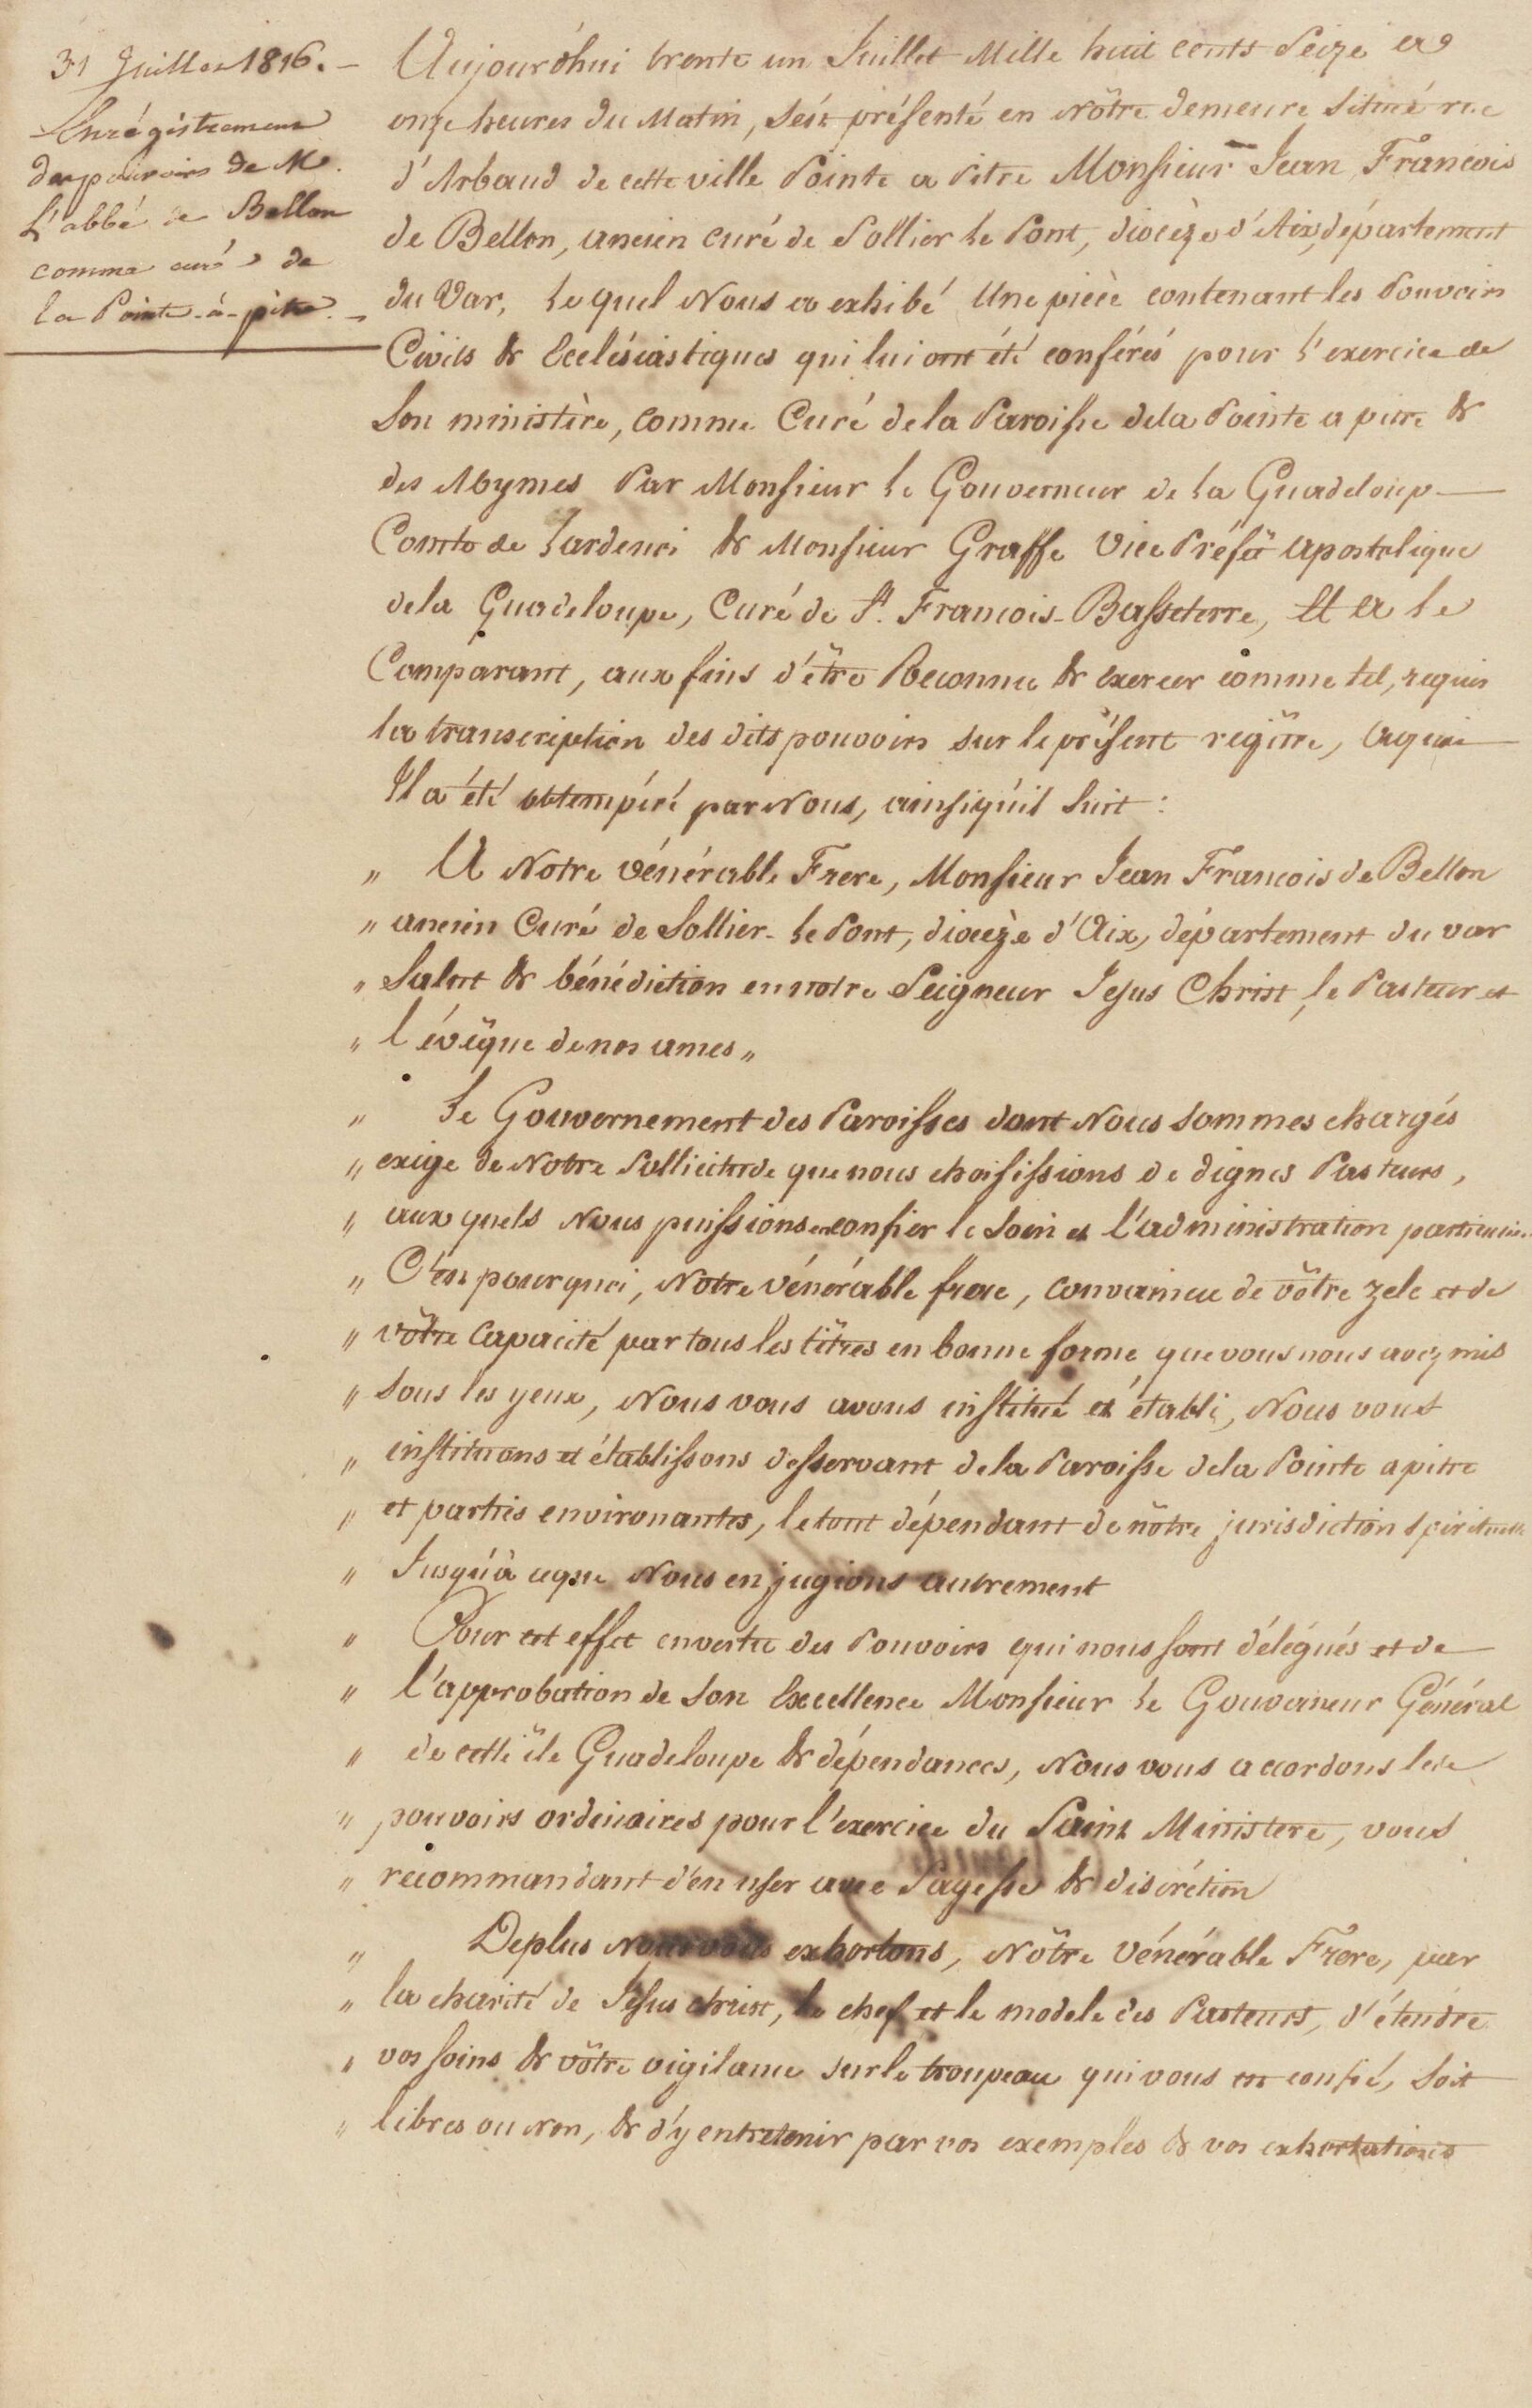 31 Juillet 1816. —
Enrégistrement
des pouvoirs de Mr.
L'abbé de Bellon
comme curé de
la Pointe-à-pitre. —
Aujourd'hui trente un Juillet Mille huit cents Seize a
onze heures du Matin, s'est présenté en Nôtre demeure située rue
d'Arbaud de cette ville Pointe a Pitre Monsieur Jean Francois
de Bellon, ancien curé de Sollier le Pont, diocèze d'Aix, département
du Var, Lequel Nous a exhibé Une pièce contenant les Pouvoirs
Civils & Ecclésiastiques qui lui ont été conférés pour l'exercice de
Son ministère, comme Curé de la Paroisse de la Pointe a pitre &
des Abymes Par Monsieur le Gouverneur de la Guadeloup —
Comte de Lardenoi & Monsieur Graffe Vice Préfêt apostolique
de la Guadeloupe, Curé de St. Francois-Basseterre, Et a le
Comparant, aux fins d'être Reconnu & exercer comme tel, requis
la transcription des dits pouvoirs sur le présentregître, aquoi —
Il a été obtempéré par Nous, ainsi qu'il suit :
" A Notre vénérable Frere, Monsieur Jean Francois de Bellon
" ancien Curé de Sollier-le Pont, diocèze d'Aix, département du var
" Salut & bénédiction en notre Seigneur Jesus Christ, le Pasteur et
" l'évêque de nos ames "
" Le Gouvernement des Paroisses dont Nous sommes chargés
" exige de Notre Sollicitude que nous choisissions de dignes Pasteurs,
" aux quels Nous puissions en confier le soin et l'administration
" C'est pourquoi, Notre vénérable frere, convaincu de vôtre zele et de
" vôtre capacité par tous les tîtres en bonne forme que vous nous avez mis
" sous les yeux, Nous vous avons institué et établi, Nous vous
" instituons et établissons desservant de la Paroisse de la Pointe apitre
" et parties environantes, le tout dépendant de nôtre jurisdiction spirituelle
" Jusqu'à ceque Nous en jugions autrement
" Pour cet effet en vertu des Pouvoirs qui nous sont délégués et de —
" l'approbation de Son Excellence Monsieur le Gouverneur Général
" de cette île Guadeloupe & dépendances, Nous vous accordons les
" pouvoirs ordinaires pour l'exercice du Saint Ministere, vous
" recommandant d'en user avec Sagesse & discrétion
" Deplus Nous vous exhortons, Nôtre Vénérable Frere, par
" la charité de Jesus christ, le chef et le modele des Pasteurs, d'étendre
" vos soins & vôtre vigilance sur le troupeau qui vous est confié, soit
" libres ou Non, & d'y entretenir par vos exemples & vos exhortations